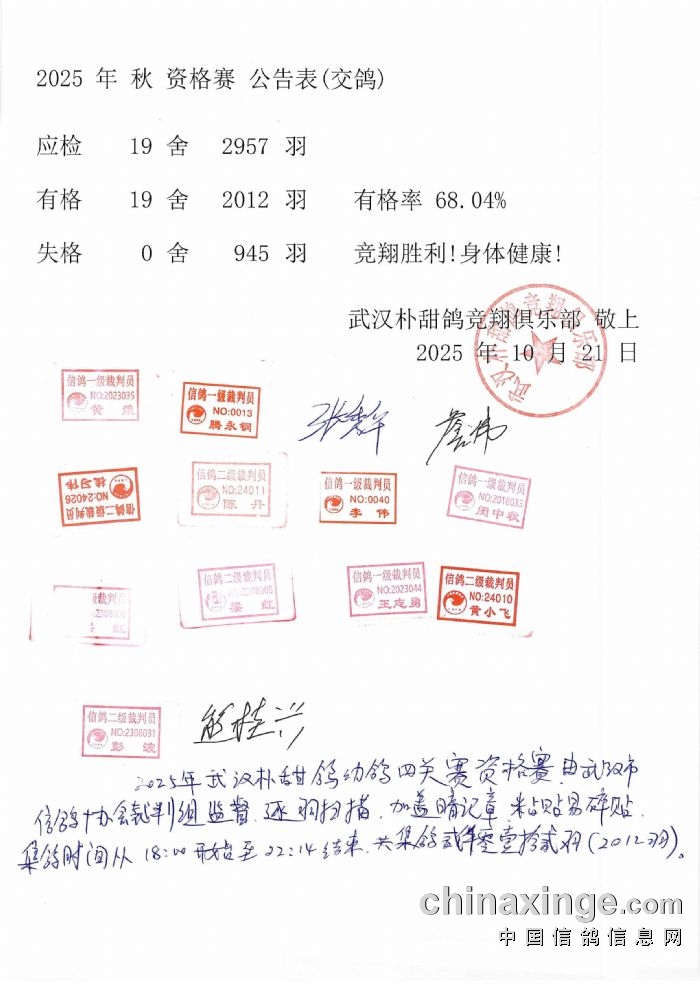 2025 年 秋 资格赛 公告表(交鸽)
应检 19 舍 2957 羽
有格 19 舍 2012 羽 有格率 68.04%
失格 0 舍 945 羽 竞翔胜利!身体健康!
武汉朴甜鸽竞翔俱乐部 敬上
2025 年 10 月 21 日
武汉朴甜鸽竞翔俱乐部
信鸽一级裁判员
NO:2023035
黄
信鸽一级裁判员
NO:0013
腾永钢
信鸽二级裁判员
NO:24026
桂习伟
信鸽二级裁判员
NO:24011
陈丹
信鸽一级裁判员
NO:0040
李伟
信鸽一级裁判员
NO:2018033
闵中秋
级裁判员
虹
信鸽二级裁判员
梁虹
信鸽一级裁判员
NO:2023044
王志勇
信鸽二级裁判员
NO:24010
黄小飞
信鸽二级裁判员
NO:2308031
彭波
2025年武汉朴甜鸽幼鸽四关赛资格赛由武汉市
信鸽协会裁判组监督.逐羽扫描.加盖暗记章 粘贴易碎贴.
集鸽时间从18:00开始至22:14结束.共集鸽贰仟零壹拾贰羽(2012羽)。
chinaxinge.com
中国信鸽信息网